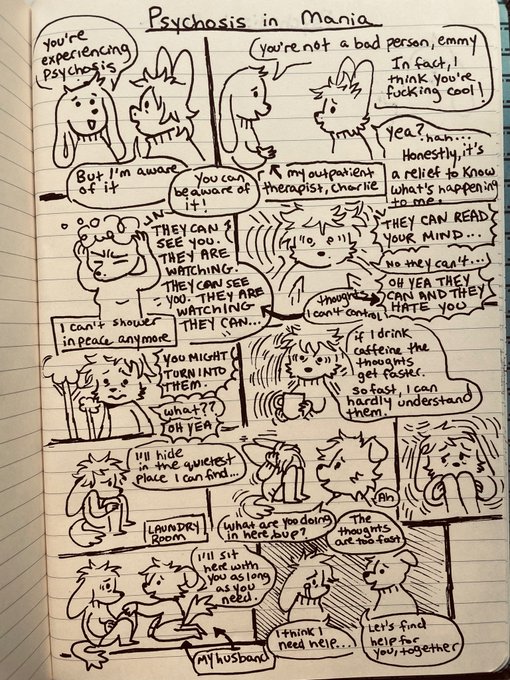 Psychosis in Mania
you're
experiencing
psychosis
But I'm aware
of it
You can
be aware of
it!
you're not a bad person, emmy
In fact, I
think you're
fucking cool!
my outpatient
therapist, Charlie
yea? hah...
Honestly, it's
a relief to know
what's happening
to me.
THEY CAN
SEE YOU.
THEY ARE
WATCHING.
THEY CAN SEE
YOU. THEY ARE
WATCHING
THEY CAN...
I can't shower
in peace anymore
THEY CAN READ
YOUR MIND...
No they can't...
OH YEA THEY
CAN AND THEY
HATE YOU
thoughts
I can't control
YOU MIGHT
TURN INTO
THEM.
what??
OH YEA
if I drink
caffeine the
thoughts
get faster.
so fast, I can
hardly understand
them.
I'll hide
in the quietest
place I can find...
LAUNDRY
ROOM
What are you doing
in here, bup?
Ah
The
thoughts
are too fast
I'll sit
here with
you as long
as you
need.
My husband
I think I
need help...
Let's find
help for
you, together